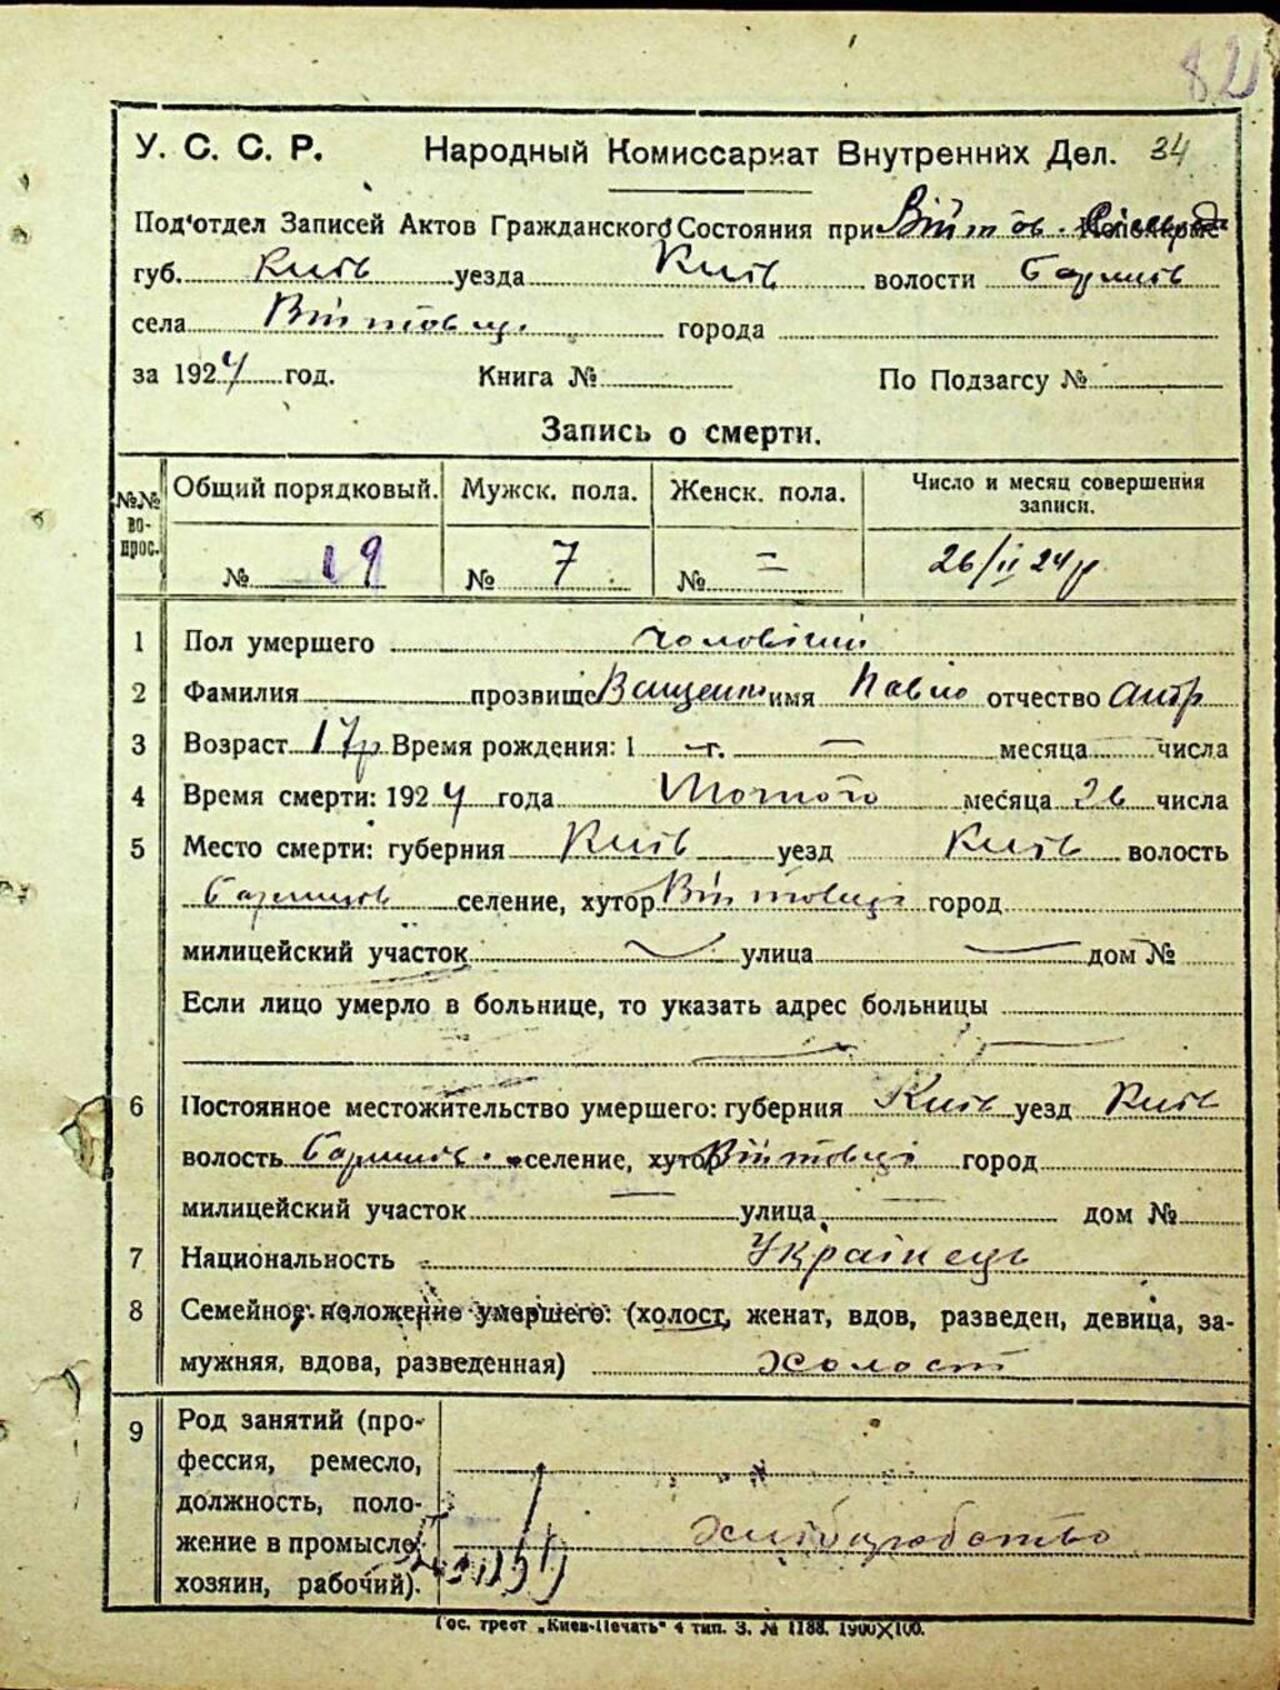 82
У. С. С. Р. Народный Комиссариат Внутренних Дел. 34
Под'отдел Записей Актов Гражданского Состояния при Війтов.
губ. Київ уезда Київ волости Баришів
села Війтовці города
за 1924 год. Книга № По Подзагсу №
Запись о смерти.
№№ вопрос. Общий порядковый. Мужск. пола. Женск. пола. Число и месяц совершения записи.
№ 19 № 7 № = 26/II 24 р
1 Пол умершего чоловічий
2 Фамилия прозвище Ващенко имя Павло отчество Андр
3 Возраст 17 р Время рождения: 1 — г. — месяца числа
4 Время смерти: 1924 года Лютого месяца 26 числа
5 Место смерти: губерния Київ уезд Київ волость
селение, хутор Війтовці город
милицейский участок улица дом №
Если лицо умерло в больнице, то указать адрес больницы
6 Постоянное местожительство умершего: губерния Київ уезд Київ
волость Баришів. селение, хутор Війтовці город
милицейский участок улица дом №
7 Национальность Українець
8 Семейное положение умершего: (холост, женат, вдов, разведен, девица, за-
мужняя, вдова, разведенная) холост
9 Род занятий (про-
фессия, ремесло,
должность, поло-
жение в промысле:
хозяин, рабочий). хліборобство
Гос. трест „Киев-Печать" 4 тип. З. № 1188. 1900X100.